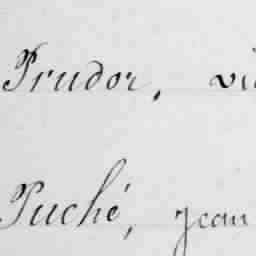 Prudor, vi
Puché, jean